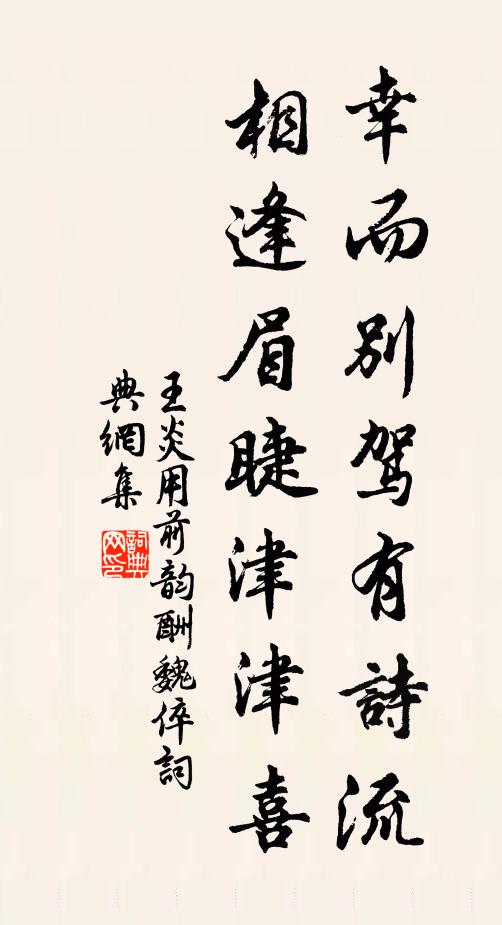 幸而別駕有詩流
相逢眉睫津津喜
王炎用前韵酬魏倅詞
典網集
詞典
网印